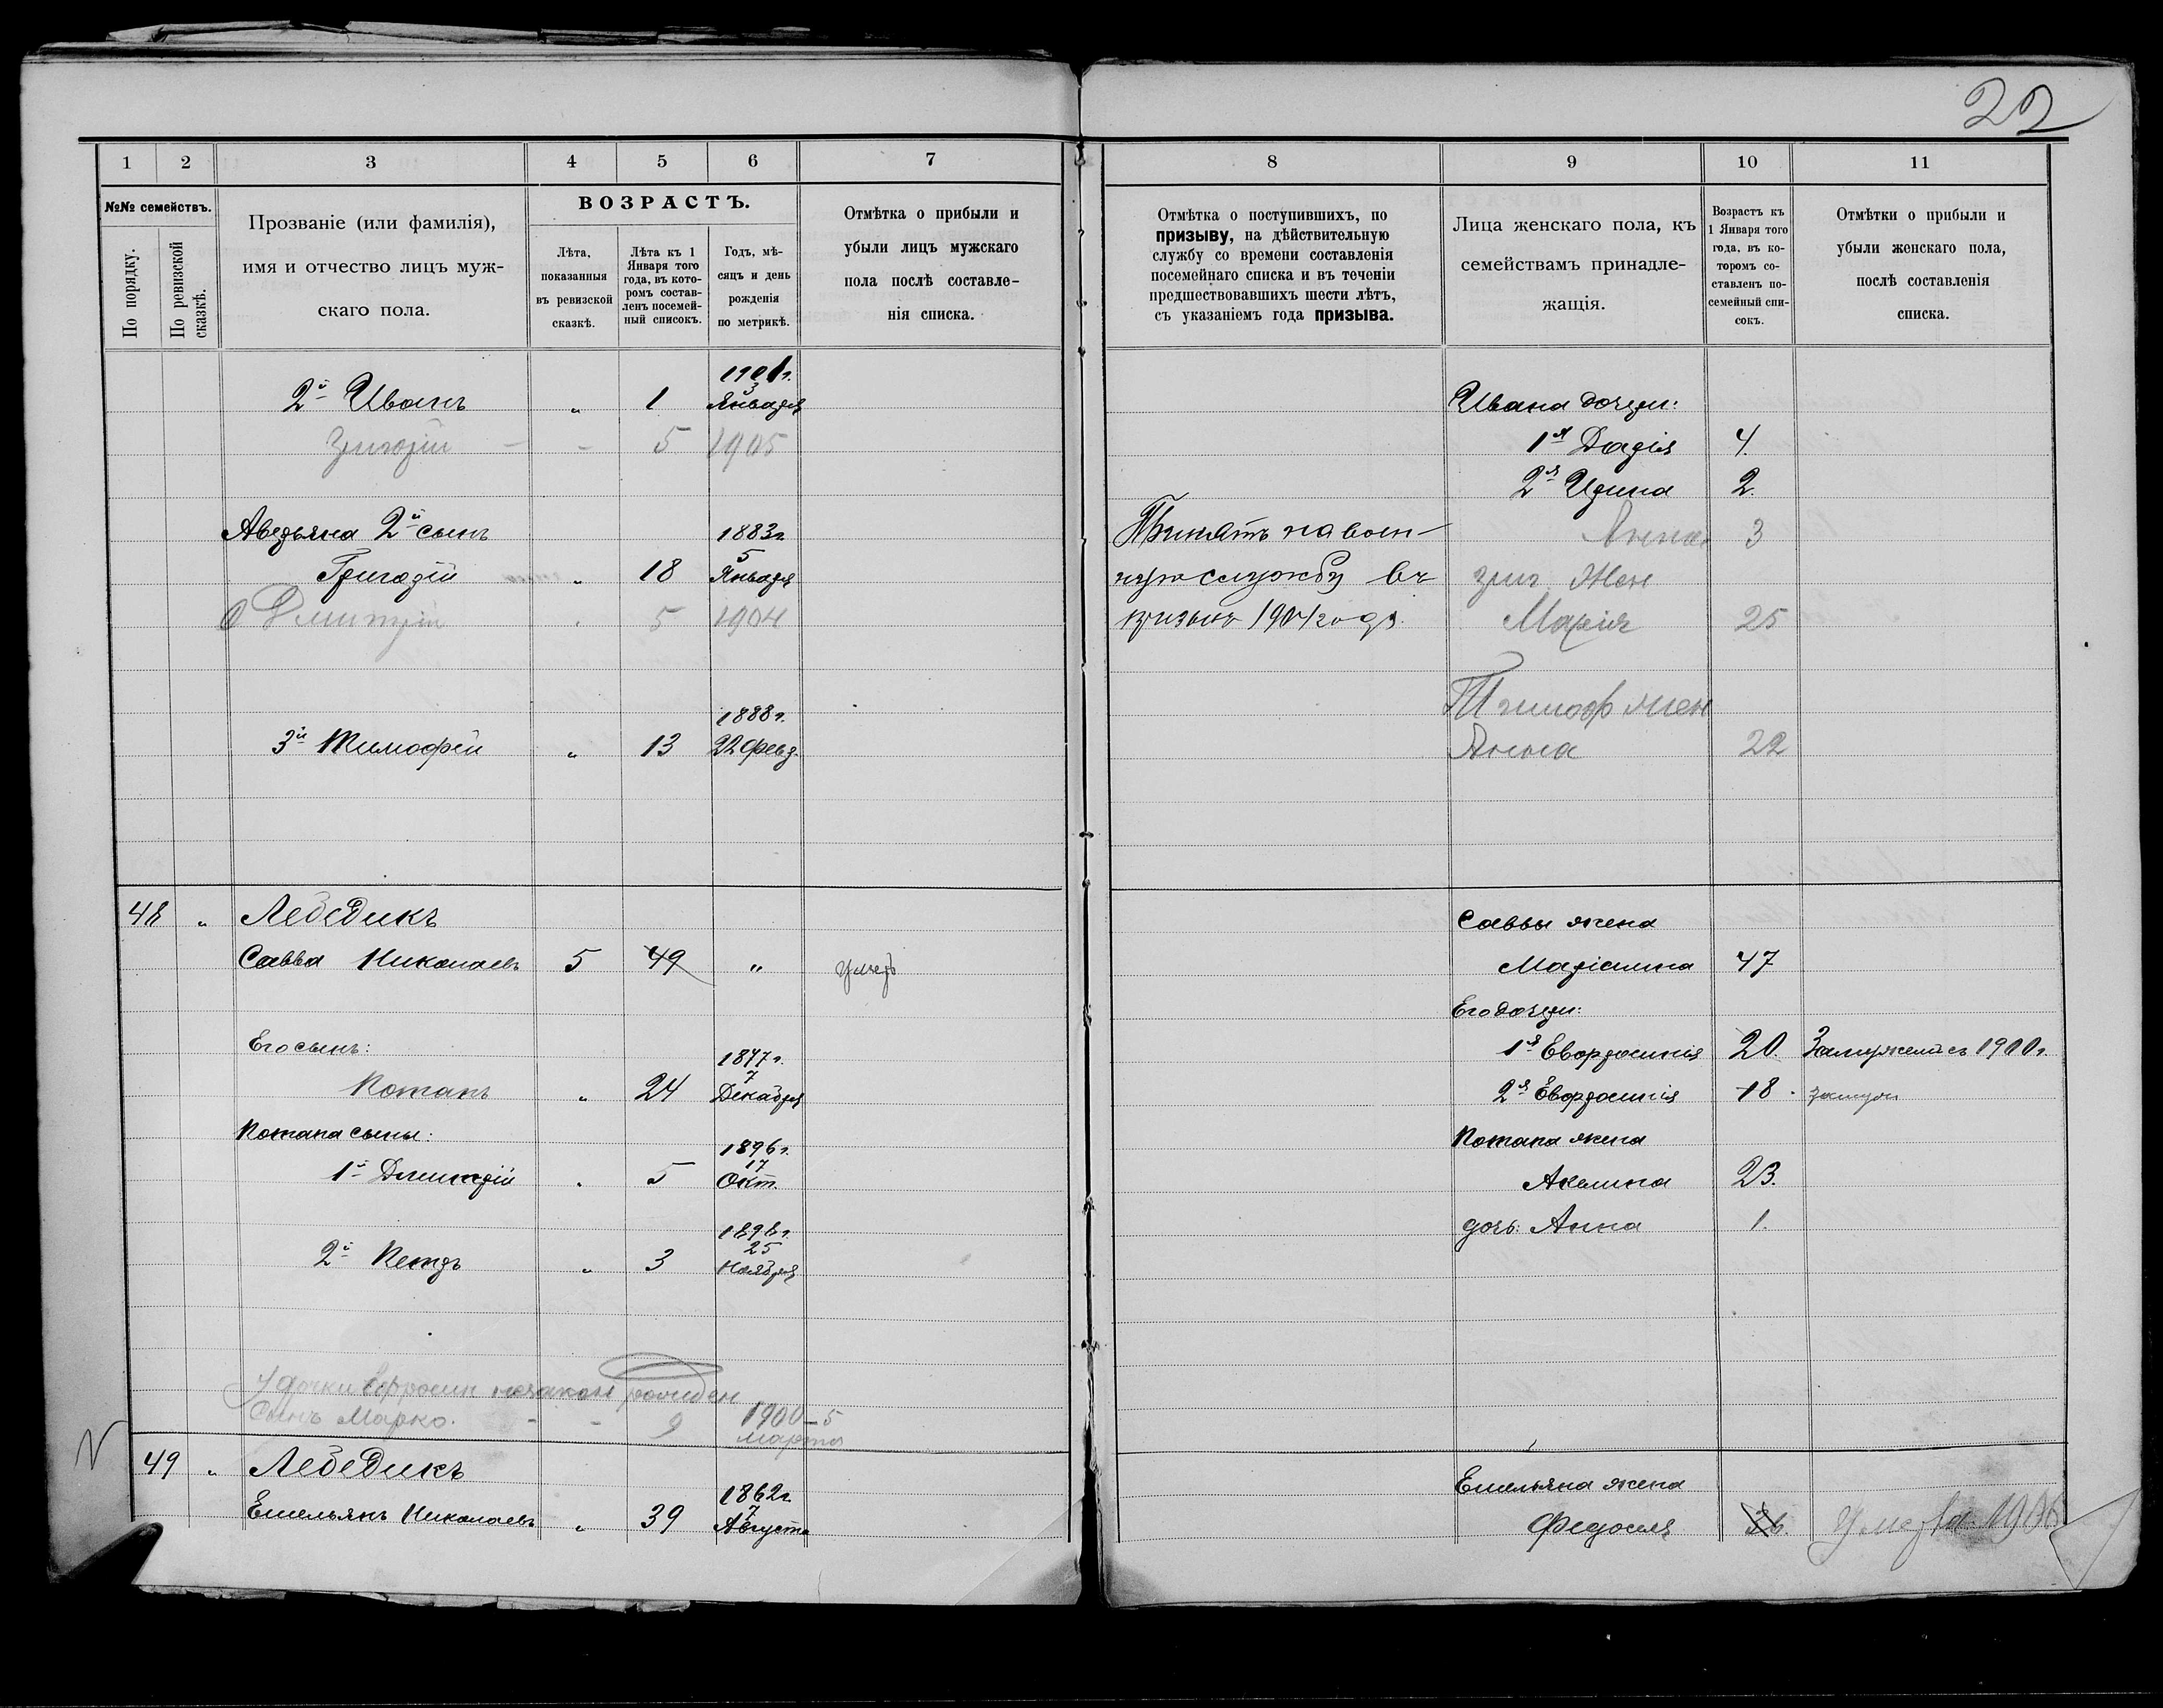 22
1 2 3 4 5 6 7
№№ семействъ.
По порядку.
По ревизской сказкѣ.
Прозваніе (или фамилія),
имя и отчество лицъ муж-
скаго пола.
ВОЗРАСТЪ.
Лѣта,
показанныя
въ ревизской
сказкѣ.
Лѣта къ 1
Января того
года, въ кото-
ромъ состав-
ленъ посемей-
ный списокъ.
Годъ, мѣ-
сяцъ и день
рожденія
по метрикѣ.
Отмѣтка о прибыли и
убыли лицъ мужскаго
пола послѣ составле-
нія списка.
1901 г.
3
2й Иванъ „ 1 Января
Григорій - - 5 1905
Аверьяна 2й сынъ 1883 г.
5
Григорій „ 18 Января
Дмитрій . 5 1904
1888 г.
3й Тимофей „ 13 22 Февр.
48 „ Лебедикъ
Савва Николаевъ 5 49 „ умеръ
Его сынъ: 1877 г.
7
Потапъ „ 24 Декабря
Потапа сыны: 1896 г.
17
1й Дмитрій . 5 Окт.
1898 г.
25
2й Петръ „ 3 Ноября
У дочки Ефросин незакон рожден
сынъ Марко. - - 9 1900-5
марта
49 „ Лебедикъ
1862 г.
7
Емельянъ Николаевъ „ 39 Августа
8 9 10 11
Отмѣтка о поступившихъ, по
призыву, на дѣйствительную
службу со времени составленія
посемейнаго списка и въ теченіи
предшествовавшихъ шести лѣтъ,
съ указаніемъ года призыва.
Лица женскаго пола, къ
семействамъ принадле-
жащія.
Возрастъ къ
1 Января того
года, въ ко-
торомъ со-
ставленъ по-
семейный спи-
сокъ.
Отмѣтки о прибыли и
убыли женскаго пола,
послѣ составленія
списка.
Ивана дочери:
1я Дарія 4.
2я Ирина 2.
Принятъ на воен- Анна 3
ную службу въ григ. Жен
призывъ 1904 года. Марія 25
Тимоф жен
Анна 22
Саввы жена
Маріанна 47
Его дочери:
1я Евфросинія 20. Замужем съ 1900 г.
2я Евфросинія 18.
Потапа жена
Акилина 23.
дочь: Анна 1.
Емельяна жена
Федосія 36. Умерла